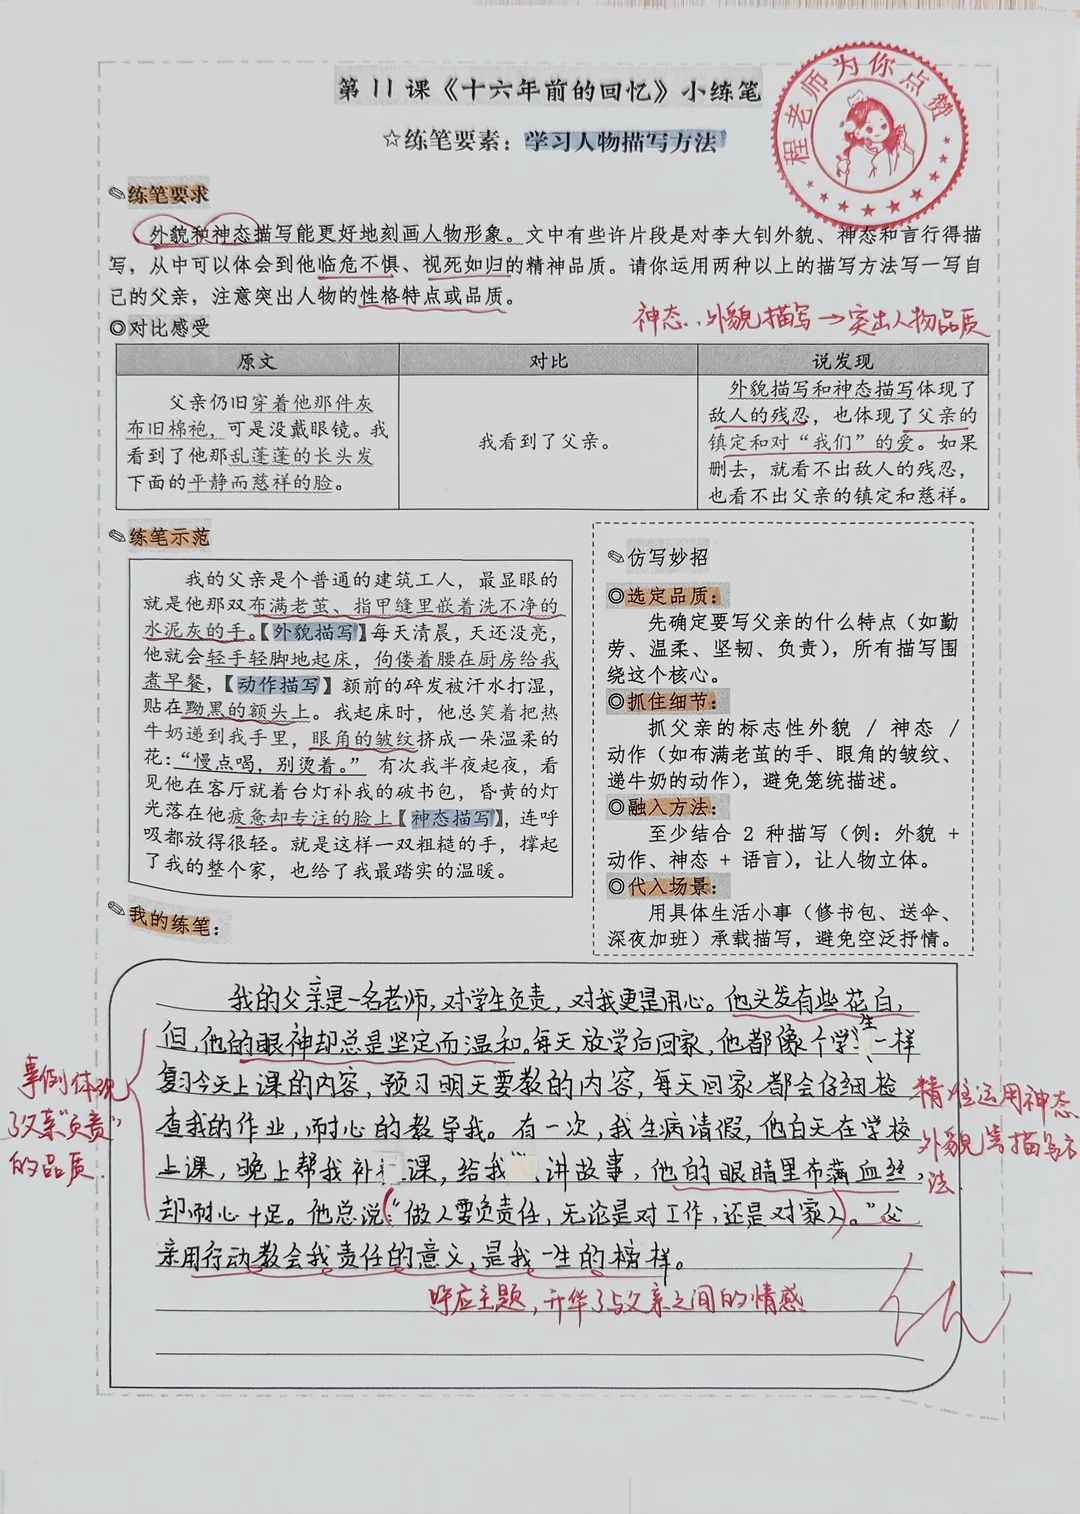 程老师为你点赞
第11课《十六年前的回忆》小练笔
☆练笔要素：学习人物描写方法
练笔要求
外貌和神态描写能更好地刻画人物形象。文中有些许片段是对李大钊外貌、神态和言行得描
写，从中可以体会到他临危不惧、视死如归的精神品质。请你运用两种以上的描写方法写一写自
己的父亲，注意突出人物的性格特点或品质。
神态、外貌描写→突出人物品质
◎对比感受
原文
对比
说发现
父亲仍旧穿着他那件灰
布旧棉袍，可是没戴眼镜。我
看到了他那乱蓬蓬的长头发
下面的平静而慈祥的脸。
我看到了父亲。
外貌描写和神态描写体现了
敌人的残忍，也体现了父亲的
镇定和对“我们”的爱。如果
删去，就看不出敌人的残忍，
也看不出父亲的镇定和慈祥。
练笔示范
我的父亲是个普通的建筑工人，最显眼的
就是他那双布满老茧、指甲缝里嵌着洗不净的
水泥灰的手。【外貌描写】每天清晨，天还没亮，
他就会轻手轻脚地起床，佝偻着腰在厨房给我
煮早餐，【动作描写】额前的碎发被汗水打湿，
贴在黝黑的额头上。我起床时，他总笑着把热
牛奶递到我手里，眼角的皱纹挤成一朵温柔的
花：“慢点喝，别烫着。” 有次我半夜起夜，看
见他在客厅就着台灯补我的破书包，昏黄的灯
光落在他疲惫却专注的脸上【神态描写】，连呼
吸都放得很轻。就是这样一双粗糙的手，撑起
了我的整个家，也给了我最踏实的温暖。
仿写妙招
◎选定品质：
先确定要写父亲的什么特点（如勤
劳、温柔、坚韧、负责），所有描写围
绕这个核心。
◎抓住细节：
抓父亲的标志性外貌 / 神态 /
动作（如布满老茧的手、眼角的皱纹、
递牛奶的动作），避免笼统描述。
◎融入方法：
至少结合 2 种描写（例：外貌 +
动作、神态 + 语言），让人物立体。
◎代入场景：
用具体生活小事（修书包、送伞、
深夜加班）承载描写，避免空泛抒情。
我的练笔：
我的父亲是一名老师，对学生负责，对我更是用心。他头发有些花白，
但，他的眼神却总是坚定而温和。每天放学后回家，他都像个学生一样
复习今天上课的内容，预习明天要教的内容，每天回家都会仔细检
查我的作业，耐心的教导我。有一次，我生病请假，他白天在学校
上课，晚上帮我补课，给我讲故事，他的眼睛里布满血丝，
却耐心十足。他总说：“做人要负责任，无论是对工作，还是对家人。”父
亲用行动教会我责任的意义，是我一生的榜样。
事例体现
了父亲“负责”
的品质.
精准运用神态
外貌等描写方
法.
呼应主题，升华了与父亲之间的情感